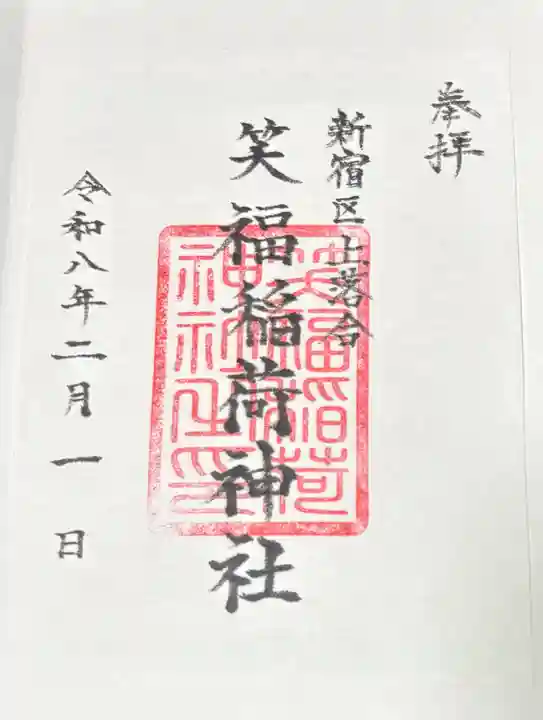 奉拝
新宿区上落合
笑福稲荷神社
笑福稲荷神社印
令和八年二月一日